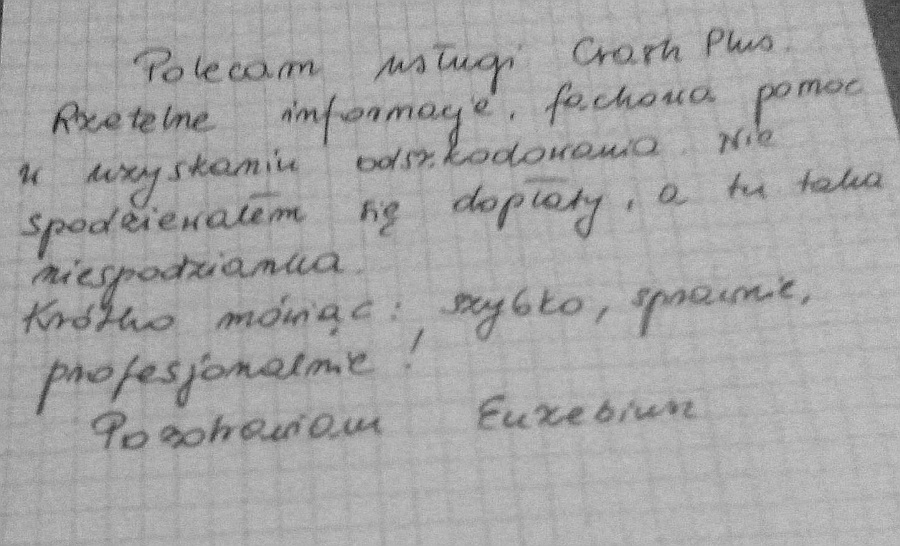 Polecam usługi Crash Plus.
Rzetelne informacje, fachowa pomoc
w uzyskaniu odszkodowania. Nie
spodziewałem się dopłaty, a tu taka
niespodzianka.
Krótko mówiąc: szybko, sprawnie,
profesjonalnie!
Pozdrawiam Euzebiusz